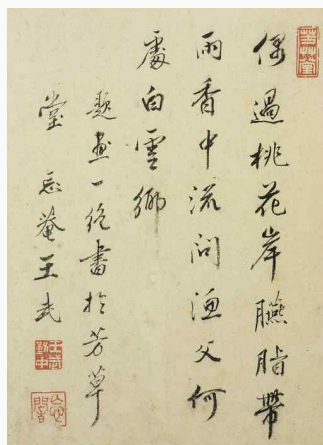 偶過桃花岸臙脂帶
雨香中流問漁父何
處白雲鄉
題畫一絕書於芳草
堂 忘菴王武